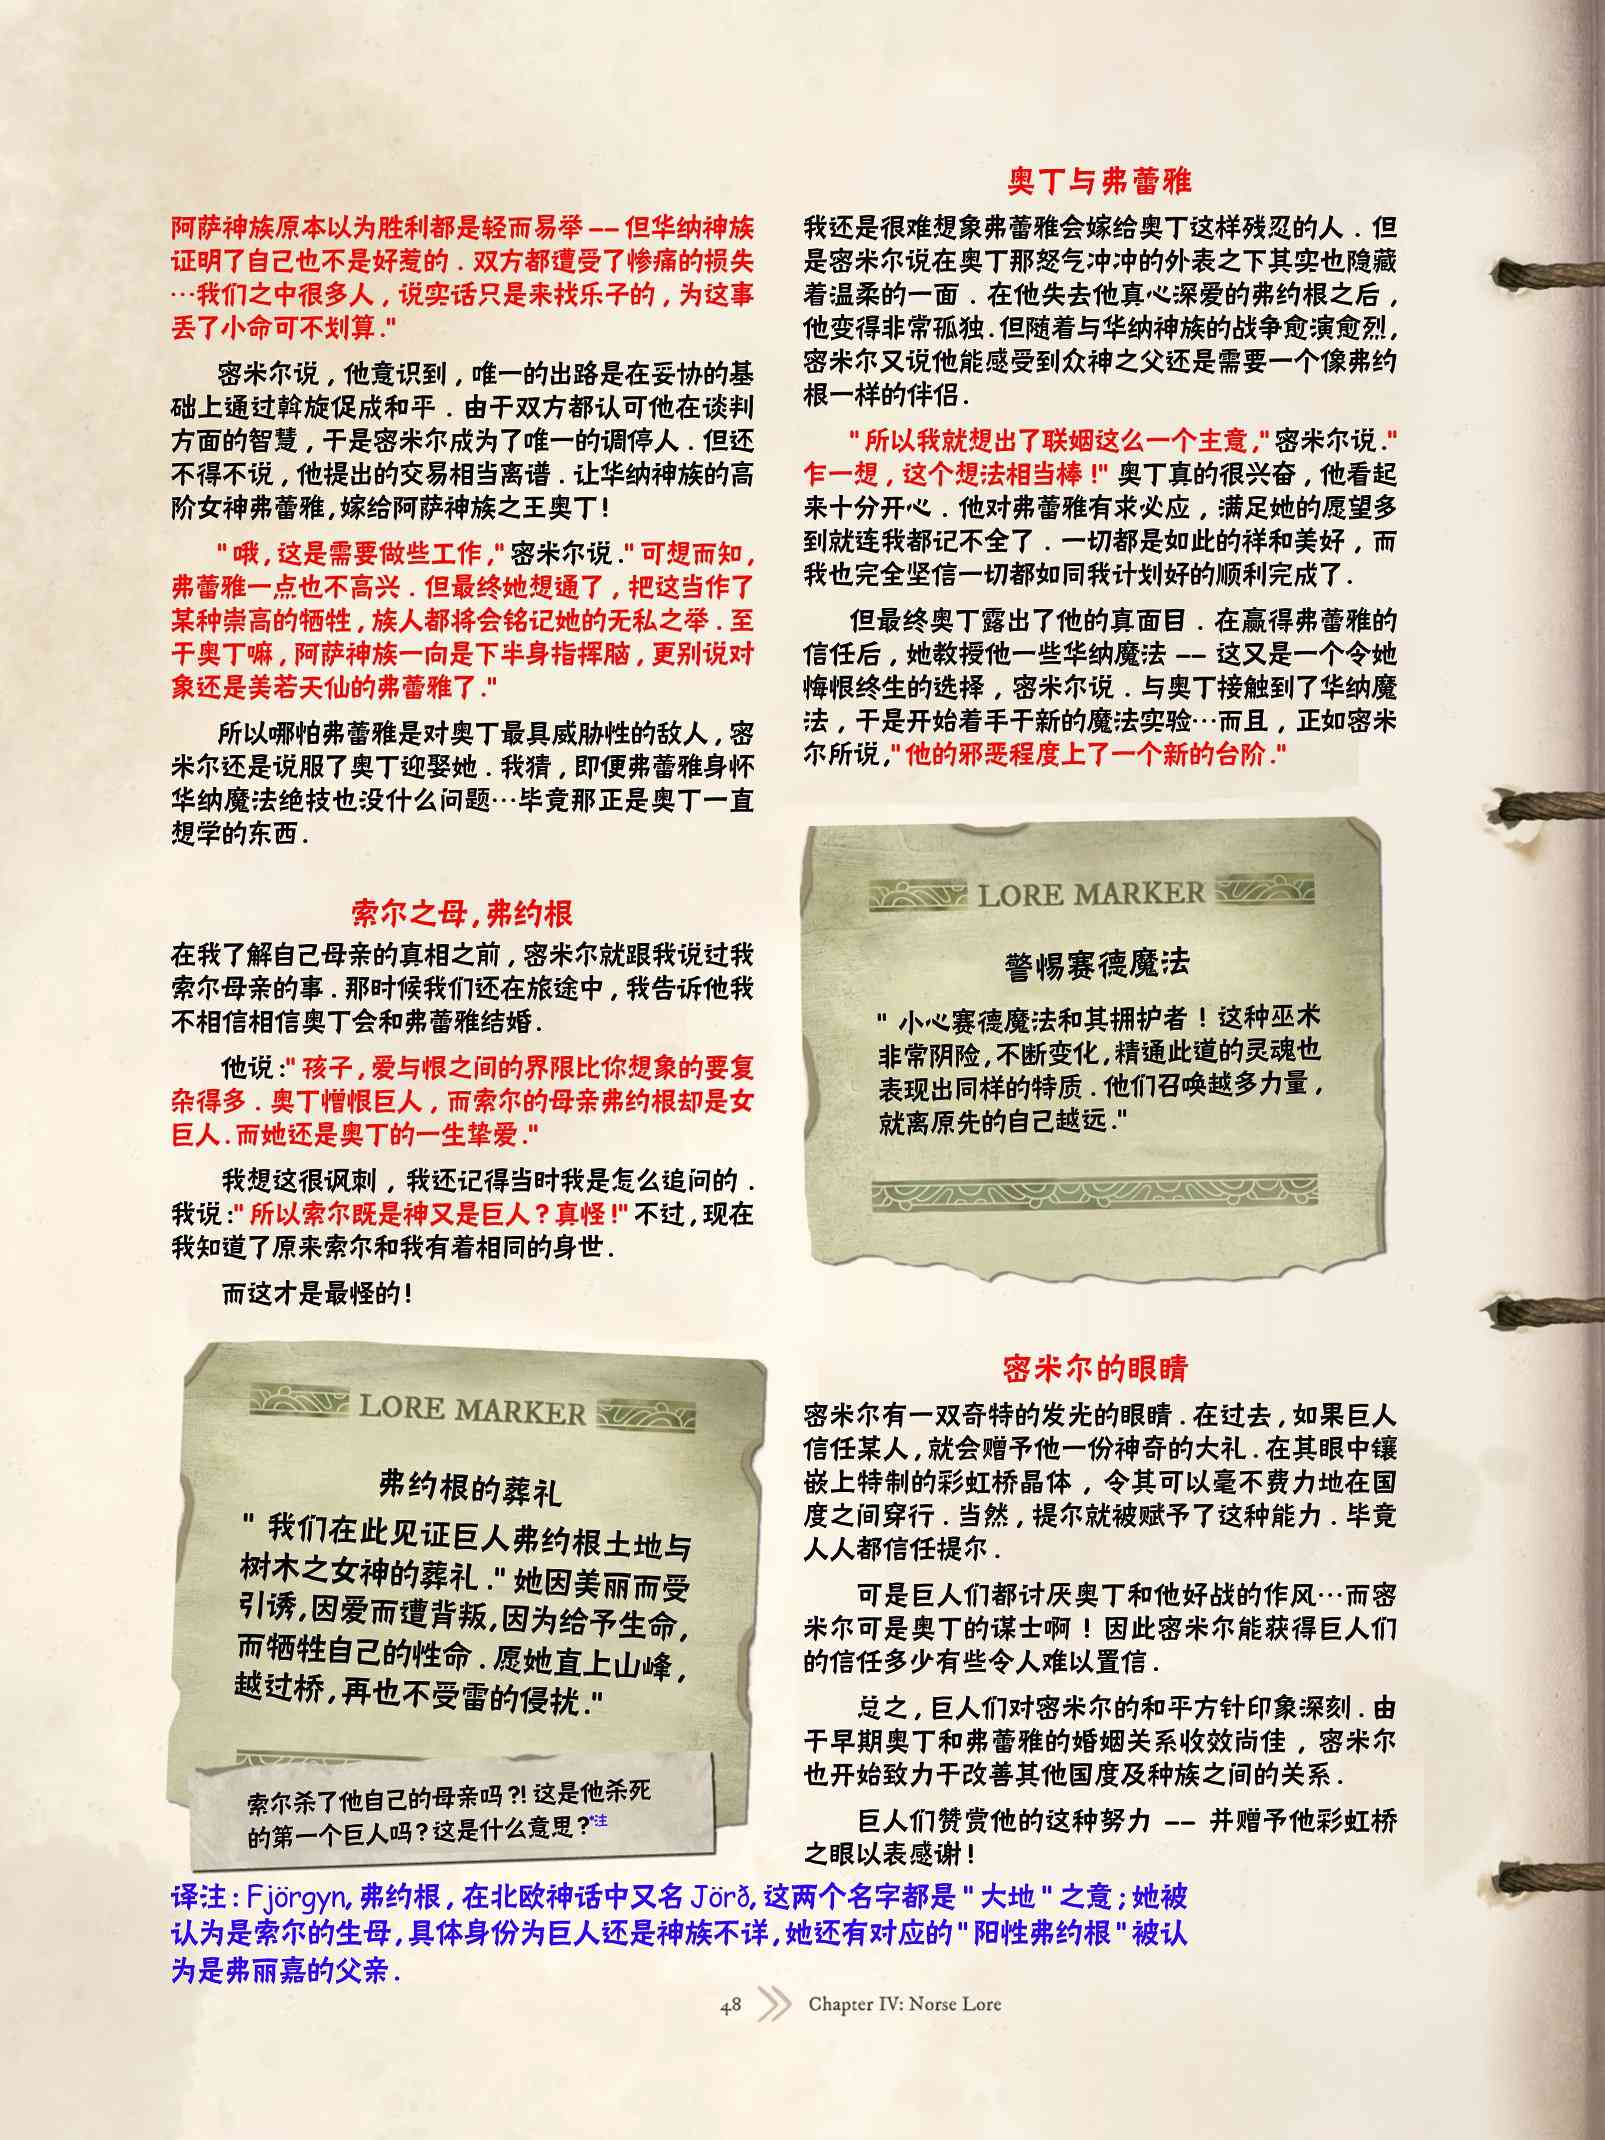 阿萨神族原本以为胜利都是轻而易举 -- 但华纳神族
证明了自己也不是好惹的．双方都遭受了惨痛的损失
…我们之中很多人，说实话只是来找乐子的，为这事
丢了小命可不划算."
密米尔说，他意识到，唯一的出路是在妥协的基
础上通过斡旋促成和平．由于双方都认可他在谈判
方面的智慧，于是密米尔成为了唯一的调停人．但还
不得不说，他提出的交易相当离谱．让华纳神族的高
阶女神弗蕾雅,嫁给阿萨神族之王奥丁!
"哦,这是需要做些工作,"密米尔说."可想而知,
弗蕾雅一点也不高兴．但最终她想通了，把这当作了
某种崇高的牺牲,族人都将会铭记她的无私之举．至
于奥丁嘛,阿萨神族一向是下半身指挥脑,更别说对
象还是美若天仙的弗蕾雅了."
所以哪怕弗蕾雅是对奥丁最具威胁性的敌人,密
米尔还是说服了奥丁迎娶她．我猜,即便弗蕾雅身怀
华纳魔法绝技也没什么问题…毕竟那正是奥丁一直
想学的东西．
索尔之母,弗约根
在我了解自己母亲的真相之前,密米尔就跟我说过我
索尔母亲的事．那时候我们还在旅途中,我告诉他我
不相信相信奥丁会和弗蕾雅结婚．
他说:"孩子,爱与恨之间的界限比你想象的要复
杂得多．奥丁憎恨巨人，而索尔的母亲弗约根却是女
巨人.而她还是奥丁的一生挚爱."
我想这很讽刺，我还记得当时我是怎么追问的．
我说:"所以索尔既是神又是巨人?真怪!"不过,现在
我知道了原来索尔和我有着相同的身世．
而这才是最怪的!
LORE MARKER
弗约根的葬礼
"我们在此见证巨人弗约根土地与
树木之女神的葬礼."她因美丽而受
引诱,因爱而遭背叛,因为给予生命,
而牺牲自己的性命．愿她直上山峰，
越过桥,再也不受雷的侵扰."
索尔杀了他自己的母亲吗?!这是他杀死
的第一个巨人吗?这是什么意思?*注
奥丁与弗蕾雅
我还是很难想象弗蕾雅会嫁给奥丁这样残忍的人．但
是密米尔说在奥丁那怒气冲冲的外表之下其实也隐藏
着温柔的一面．在他失去他真心深爱的弗约根之后，
他变得非常孤独.但随着与华纳神族的战争愈演愈烈,
密米尔又说他能感受到众神之父还是需要一个像弗约
根一样的伴侣．
"所以我就想出了联姻这么一个主意,"密米尔说."
乍一想，这个想法相当棒!"奥丁真的很兴奋，他看起
来十分开心．他对弗蕾雅有求必应，满足她的愿望多
到就连我都记不全了．一切都是如此的祥和美好，而
我也完全坚信一切都如同我计划好的顺利完成了．
但最终奥丁露出了他的真面目．在赢得弗蕾雅的
信任后，她教授他一些华纳魔法 -- 这又是一个令她
悔恨终生的选择，密米尔说．与奥丁接触到了华纳魔
法，于是开始着手于新的魔法实验…而且，正如密米
尔所说,"他的邪恶程度上了一个新的台阶."
LORE MARKER
警惕赛德魔法
"小心赛德魔法和其拥护者!这种巫术
非常阴险,不断变化,精通此道的灵魂也
表现出同样的特质．他们召唤越多力量，
就离原先的自己越远."
密米尔的眼睛
密米尔有一双奇特的发光的眼睛．在过去,如果巨人
信任某人,就会赠予他一份神奇的大礼．在其眼中镶
嵌上特制的彩虹桥晶体，令其可以毫不费力地在国
度之间穿行．当然,提尔就被赋予了这种能力．毕竟
人人都信任提尔．
可是巨人们都讨厌奥丁和他好战的作风…而密
米尔可是奥丁的谋士啊!因此密米尔能获得巨人们
的信任多少有些令人难以置信．
总之,巨人们对密米尔的和平方针印象深刻．由
于早期奥丁和弗蕾雅的婚姻关系收效尚佳，密米尔
也开始致力于改善其他国度及种族之间的关系．
巨人们赞赏他的这种努力 -- 并赠予他彩虹桥
之眼以表感谢!
译注:Fjörgyn,弗约根,在北欧神话中又名Jörð,这两个名字都是"大地"之意;她被
认为是索尔的生母,具体身份为巨人还是神族不详,她还有对应的"阳性弗约根"被认
为是弗丽嘉的父亲．
48 Chapter IV: Norse Lore